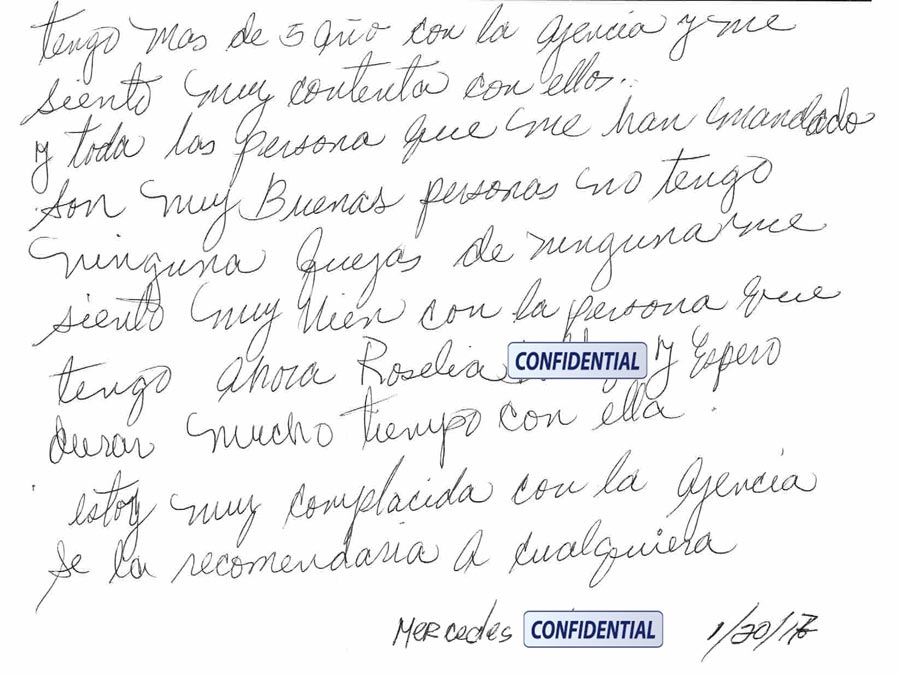 tengo mas de 5 año con la agencia y me
siento muy contenta con ellos.
y toda las persona que me han mandado
son muy Buenas personas no tengo
ninguna quejas de ninguna me
siento muy bien con la persona que
tengo ahora Roselia CONFIDENTIAL y Espero
durar mucho tiempo con ella.
estoy muy complacida con la agencia
se la recomendaria a cualquiera
Mercedes CONFIDENTIAL 1/20/